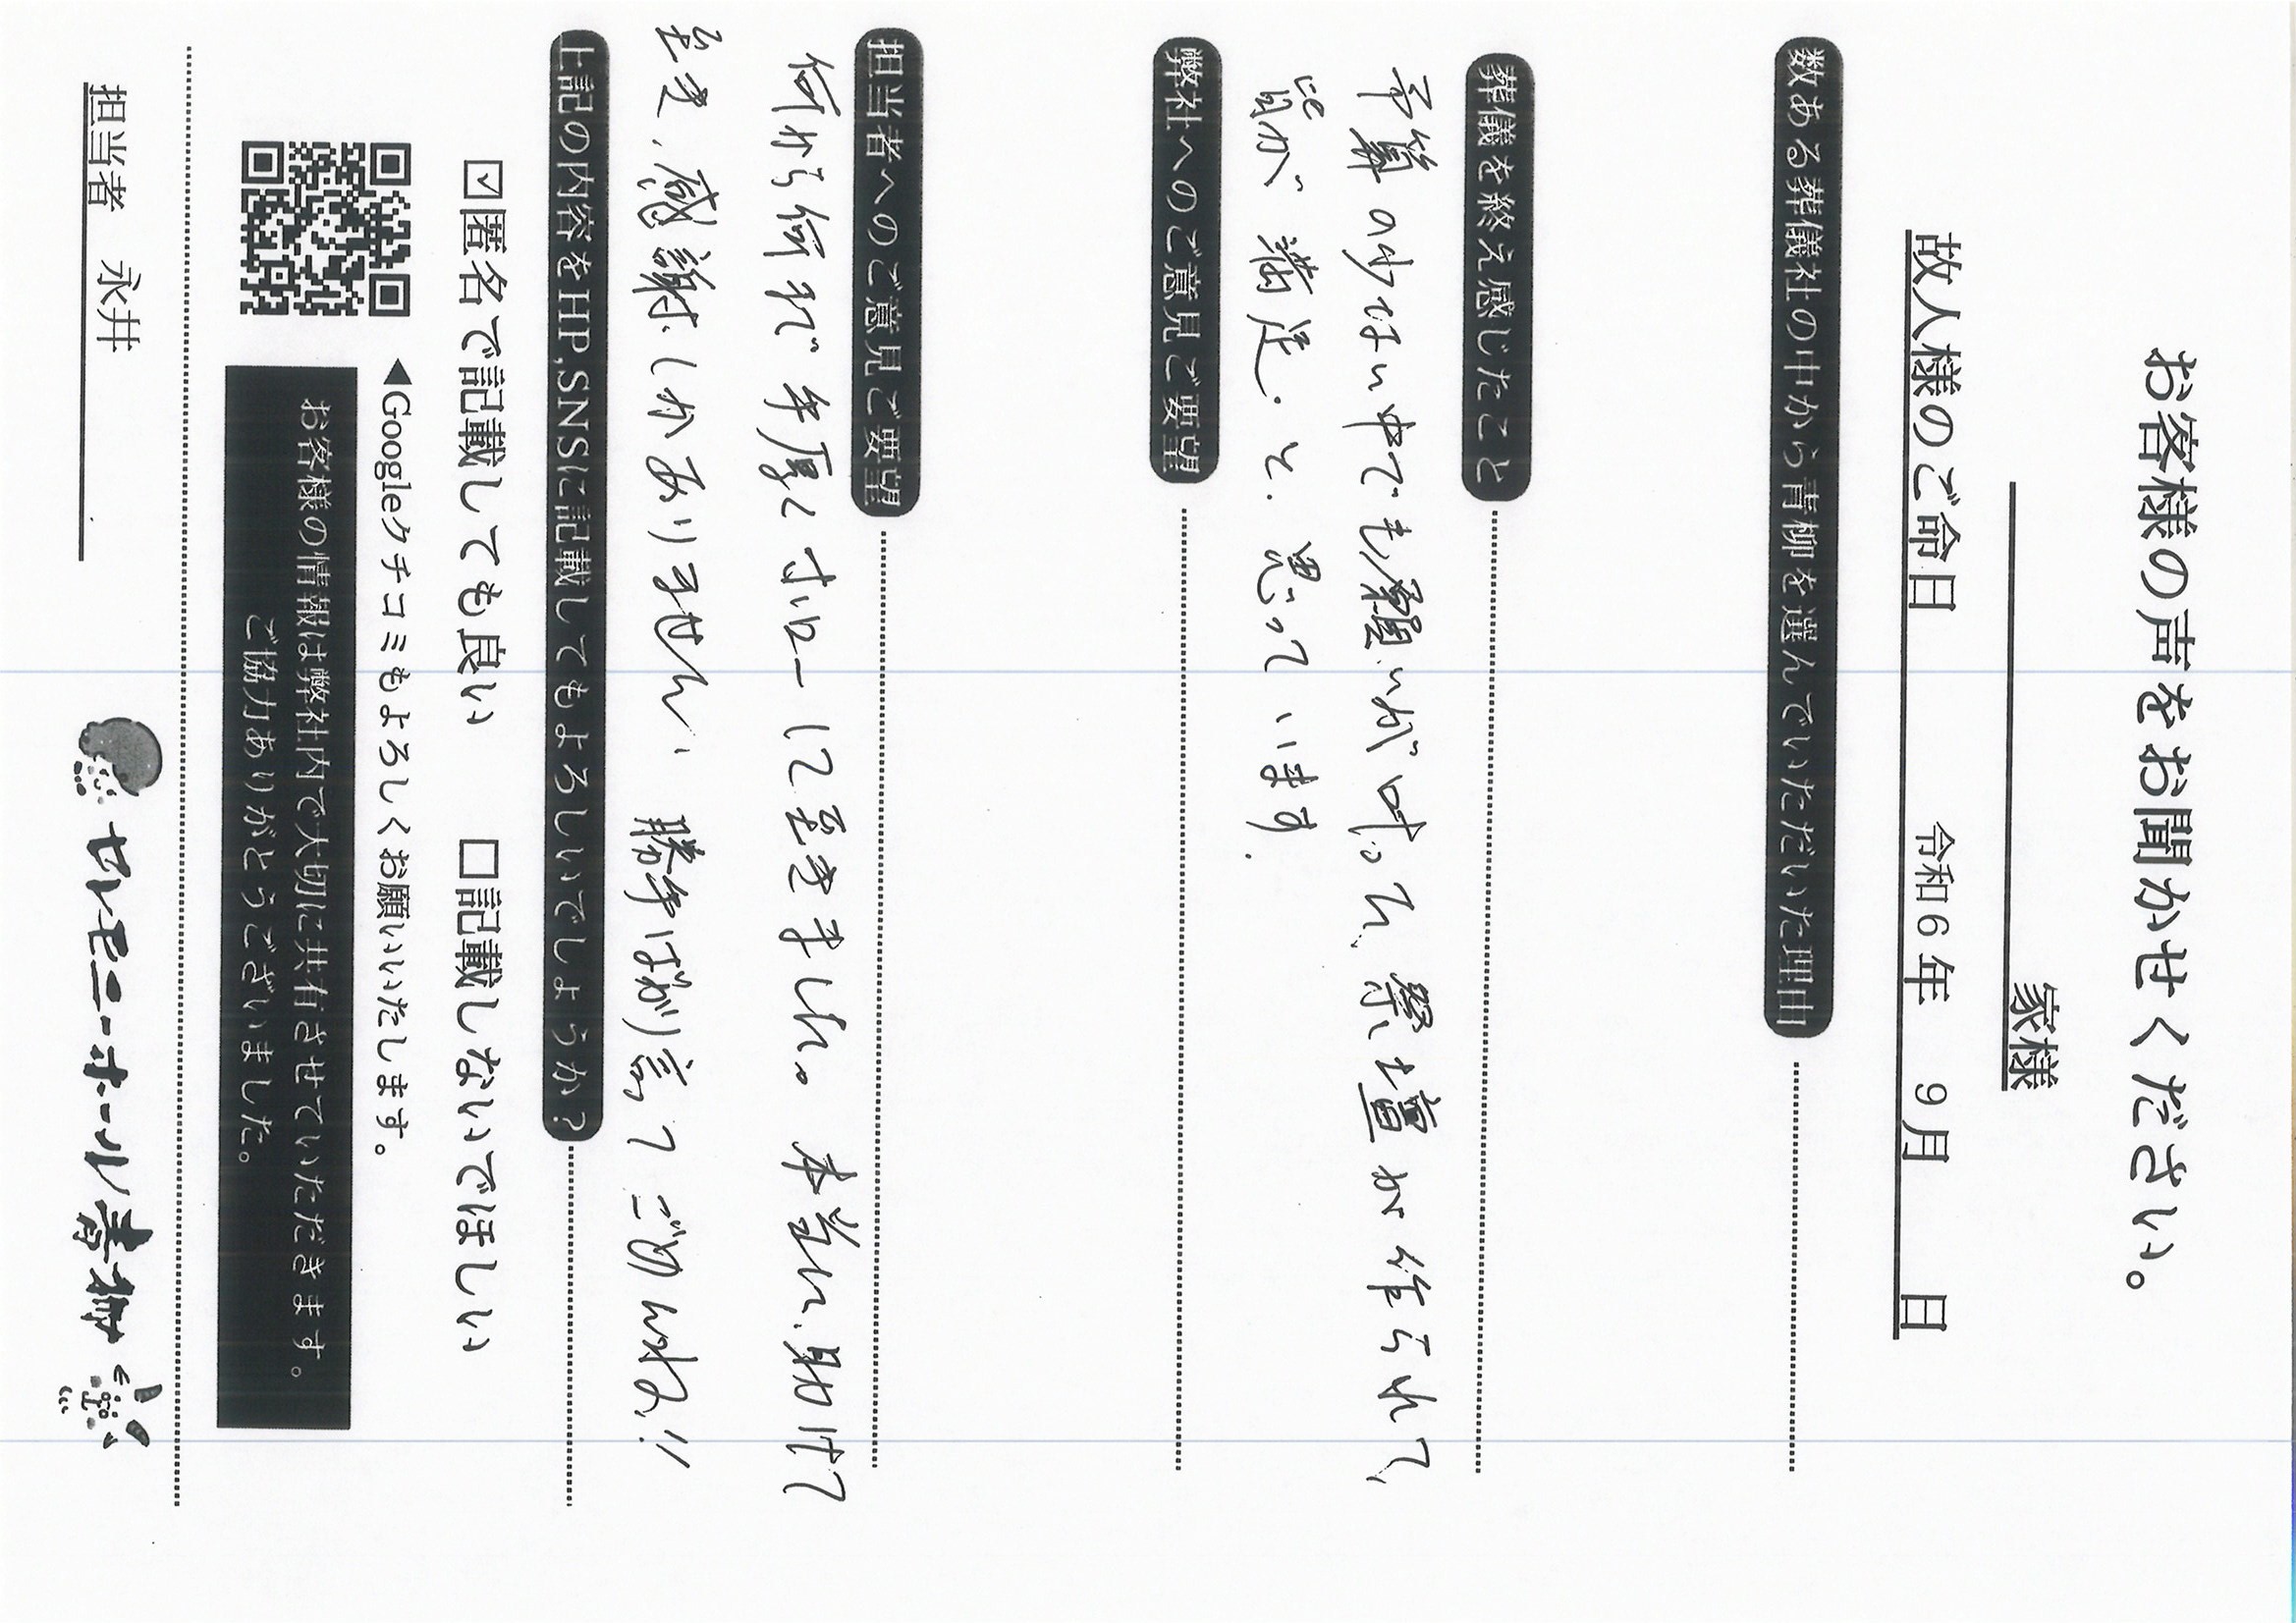 お客様の声をお聞かせください。
家様
故人様のご命日 令和6年 9月 日
数ある葬儀社の中から青柳を選んでいただいた理由
葬儀を終え感じたこと
予算の少ない中でも願いが叶った、祭壇が作られて、
皆が満足.と.思っています.
弊社へのご意見ご要望
担当者へのご意見ご要望
何から何まで手厚くフォローして頂きました。本当に、助けて
頂き、感謝しかありません、勝手ばかり言ってごめんね!!
上記の内容をHP,SNSに記載してもよろしいでしょうか?
☑匿名で記載しても良い □記載しないでほしい
◀Googleクチコミもよろしくお願いいたします。
お客様の情報は弊社内で大切に共有させていただきます。
ご協力ありがとうございました。
担当者 永井
セレモニーホール青柳